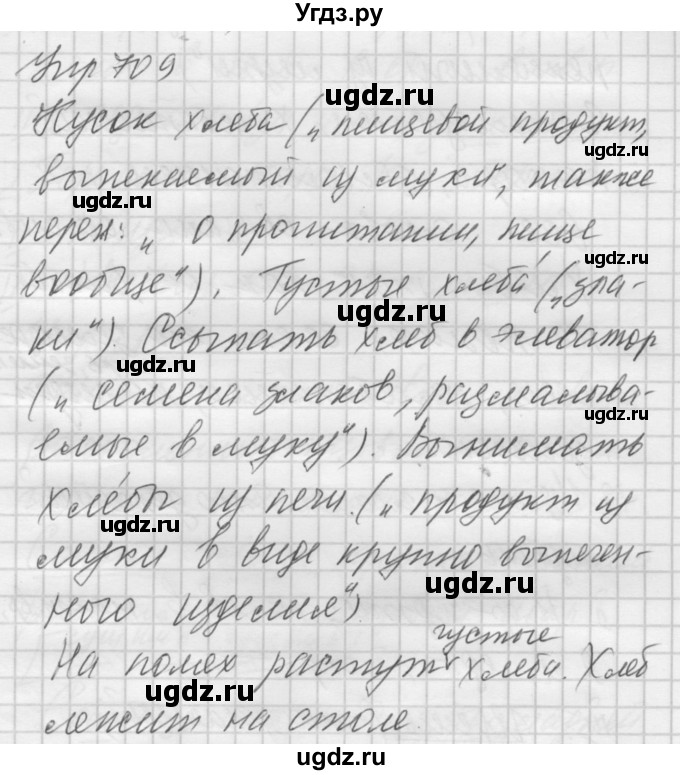 Угдз.ру
Упр 709
ugdz.ru
Кусок хлеба („пищевой продукт,
ugdz.ru
выпекаемый из муки, также
ugdz.ru
перен: „о пропитании, пище
ugdz.ru
вообще“). Густые хлеба́ („зла-
ugdz.ru
ки“). Ссыпать хлеб в элеватор
ugdz.ru
(„семена злаков, размалыва-
ugdz.ru
емые в муку“). Вынимать
хле́бы из печи. („продукт из
ugdz.ru
муки в виде крупно выпечен-
ugdz.ru
ного изделия“)
густые
На полях растут хлеба. Хлеб
ugdz.ru
ugdz.ru
лежит на столе.
ugdz.ru